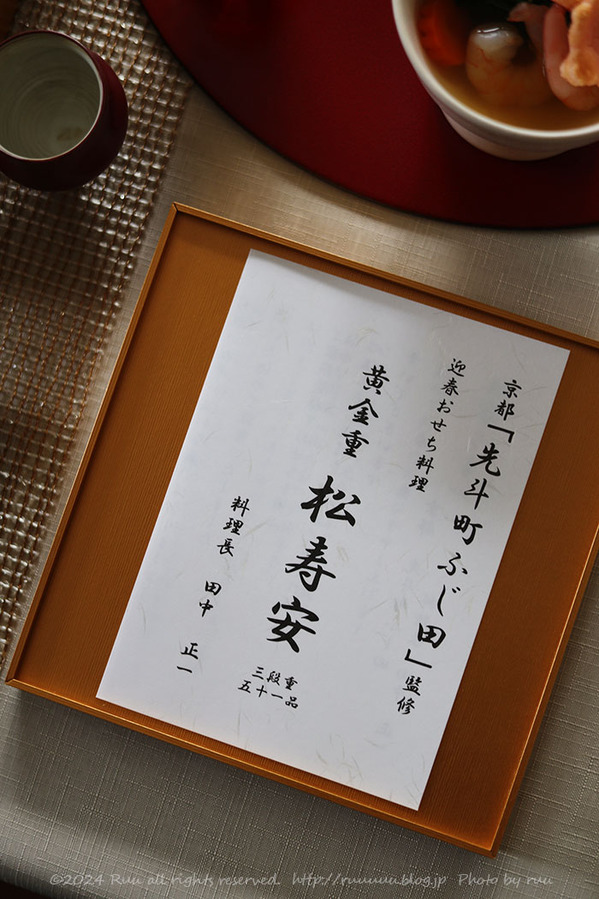 京都「先斗町ふじ田」監修
迎春おせち料理
黄金重 松寿安
三段重
五十一品
料理長 田中 正一
©2024 Ruu all rights reserved. http://ruuuuu.blog.jp Photo by ruu